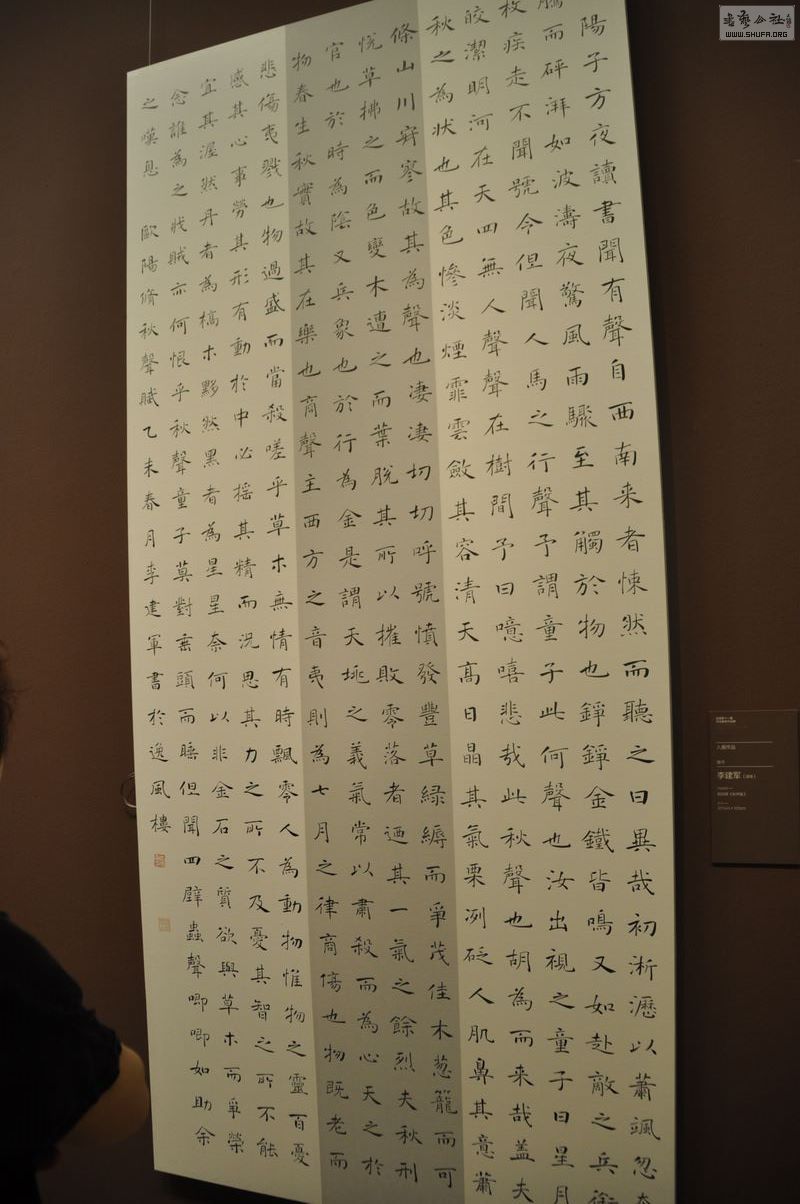 陽子方夜讀書聞有聲自西南来者悚然而聽之曰異哉初淅瀝以蕭颯忽
騰而砰湃如波濤夜驚風雨驟至其觸於物也錚錚金鐵皆鳴又如赴敵之兵銜
枚疾走不聞號令但聞人馬之行聲予謂童子此何聲也汝出視之童子曰星月
皎潔明河在天四無人聲聲在樹間予曰噫嘻悲哉此秋聲也胡為而来哉盖夫
秋之為状也其色慘淡煙霏雲斂其容清天高日晶其氣栗冽砭人肌鼻其意蕭
條山川寂寥故其為聲也凄凄切切呼號憤發豐草緑縟而爭茂佳木葱籠而可
悅草拂之而色變木遭之而葉脫其所以摧敗零落者迺其一氣之餘烈夫秋刑
官也於時為陰又兵象也於行為金是謂天地之義氣常以肅殺而為心天之於
物春生秋實故其在樂也商聲主西方之音夷則為七月之律商傷也物既老而
悲傷夷戮也物過盛而當殺嗟乎草木無情有時飄零人為動物惟物之靈百憂
感其心事勞其形有動於中必摇其精而況思其力之所不及憂其智之所不能
宜其渥然丹者為槁木黟然黑者為星星奈何以非金石之質欲與草木而爭榮
念誰為之戕賊亦何恨乎秋聲童子莫對垂頭而睡但聞四壁蟲聲唧唧如助余
之嘆息 歐陽脩秋聲賦乙未春月李建軍書於逸風樓
李建军
WWW.SHUFA.ORG